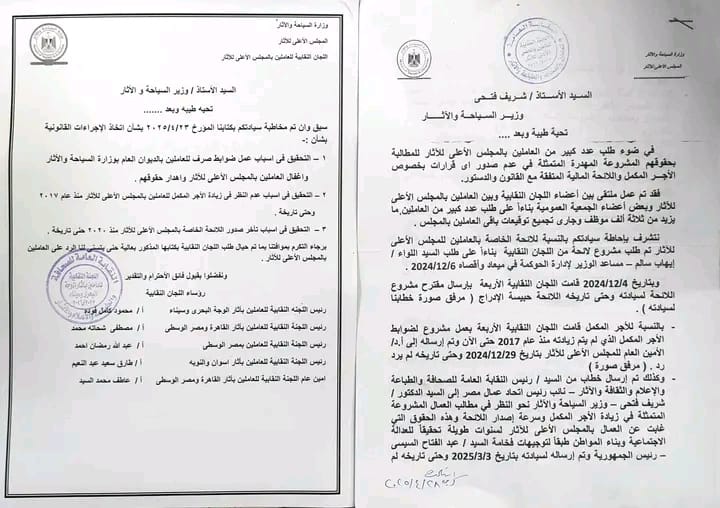 وزارة السياحة والآثار
المجلس الأعلى للآثار
السيد الأستاذ / شريف فتحى
وزير السياحة والآثار
تحية طيبة وبعد ....
في ضوء طلب عدد كبير من العاملين بالمجلس الأعلى للآثار للمطالبة
بحقوقهم المشروعة المهدرة المتمثلة في عدم صدور اى قرارات بخصوص
الأجر المكمل واللائحة المالية المتفقة مع القانون والدستور.
فقد تم عمل ملتقى بين أعضاء اللجان النقابية وبين العاملين بالمجلس الأعلى
للآثار وبعض أعضاء الجمعية العمومية بناءاً على طلب عدد كبير من العاملين.ما
يزيد من ثلاثة ألف موظف وجارى تجميع توقيعات باقى العاملين بالمجلس .
نتشرف بإحاطة سيادتكم بالنسبة للائحة الخاصة بالعاملين للمجلس الأعلى
للآثار تم طلب مشروع لائحة من اللجان النقابية بناءاً على طلب السيد اللواء /
إيهاب سالم – مساعد الوزير لإدارة الحوكمة في ميعاد وأقصاه 2024/12/6
وبتاريخ 2024/12/4 قامت اللجان النقابية الأربعة بإرسال مقترح مشروع
اللائحة لسيادته وحتى تاريخه اللائحة حبيسة الإدراج ( مرفق صورة خطابنا
لسيادته ) .
- بالنسبة للأجر المكمل قامت اللجان النقابية الأربعة بعمل مشروع لضوابط
الأجر المكمل الذي لم يتم زيادته منذ عام 2017 حتى الأن وتم إرساله إلى أ.د/
الأمين العام للمجلس الأعلى للآثار بتاريخ 2024/12/29 وحتى تاريخه لم يرد
رد . ( مرفق صورة )
- وكذلك تم إرسال خطاب من السيد / رئيس النقابة العامة للصحافة والطباعة
والإعلام والثقافة والآثار – نائب رئيس اتحاد عمال مصر إلى السيد الدكتور /
شريف فتحى – وزير السياحة والآثار نحو النظر في مطالب العمال المشروعة
المتمثلة في زيادة الأجر المكمل وسرعة إصدار اللائحة وهذه الحقوق التي
غابت عن العمال بالمجلس الأعلى للآثار لسنوات طويلة تحقيقاً للعدالة
الاجتماعية وبناء المواطن طبقاً لتوجيهات فخامة السيد / عبد الفتاح السيسى
– رئيس الجمهورية وتم إرساله لسيادته بتاريخ 2025/3/3 وحتى تاريخه لم
٢٠٢٥/٤/٢٨
وزارة السياحة والآثار
المجلس الأعلى للآثار
اللجان النقابية للعاملين بالمجلس الأعلى للآثار
السيد الأستاذ / وزير السياحة و الآثار
تحيه طيبه وبعد .......
سبق وان تم مخاطبة سيادتكم بكتابنا المورخ ٢٠٢٥/٤/٢٣ بشأن اتخاذ الإجراءات القانونية
بشأن :-
١ – التحقيق في اسباب عمل ضوابط صرف للعاملين بالديوان العام بوزارة السياحة والأثار
واغفال العاملين بالمجلس الأعلى للأثار واهدار حقوقهم .
٢ – التحقيق في اسباب عدم النظر في زيادة الأجر المكمل للعاملين بالمجلس الأعلى للأثار منذ عام ٢٠١٧
وحتى تاريخة .
٣ – التحقيق في اسباب تاخر صدور اللائحة الخاصة بالمجلس الأعلى للأثار منذ ٢٠٢٠ حتى تاريخة .
برجاء التكرم بموافتنا بما تم حيال طلب اللجان النقابية بكتابها المذكور بعالية حتى يتسنى لنا الرد على العاملين
بالمجلس الأعلى للأثار .
وتفضلوا بقبول فائق الأحترام والتقدير
رؤساء اللجان النقابية
رئيس اللجنه النقابية للعاملين بأثار الوجة البحرى وسيناء أ / محمود كامل فوده
رئيس اللجنة النقابية للعاملين بأثار القاهرة ومصر الوسطى أ / مصطفى شحاته محمد
رئيس اللجنة النقابية للعاملين بمصر الوسطى أ / عبد الله رمضان احمد
رئيس اللجنة النقابية للعاملين بأثار اسوان والنوبه أ / طارق سعيد عبد النعيم
امين عام اللجنة النقابية للعاملين بأثار القاهرة ومصر الوسطى أ / عاطف محمد السيد